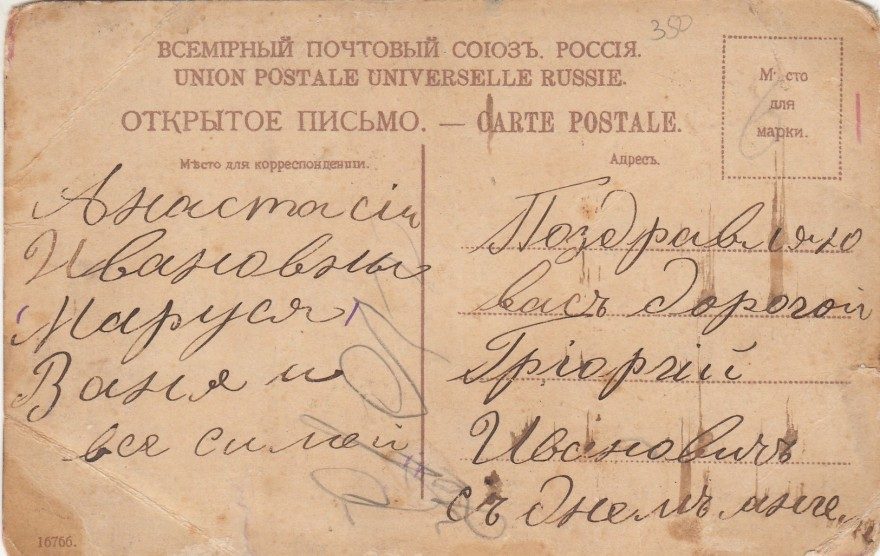 350
ВСЕМІРНЫЙ ПОЧТОВЫЙ СОЮЗЪ. РОССІЯ.
UNION POSTALE UNIVERSELLE RUSSIE.
ОТКРЫТОЕ ПИСЬМО. — CARTE POSTALE.
Мѣсто
для
марки.
Мѣсто для корреспонденціи.
Анастасіи
Ивановны
Маруся
Ваня и
все симей
Адресъ.
Поздравляю
васъ дорогой
Гріоргій
Ивановичъ
съ днемъ анге
16766.